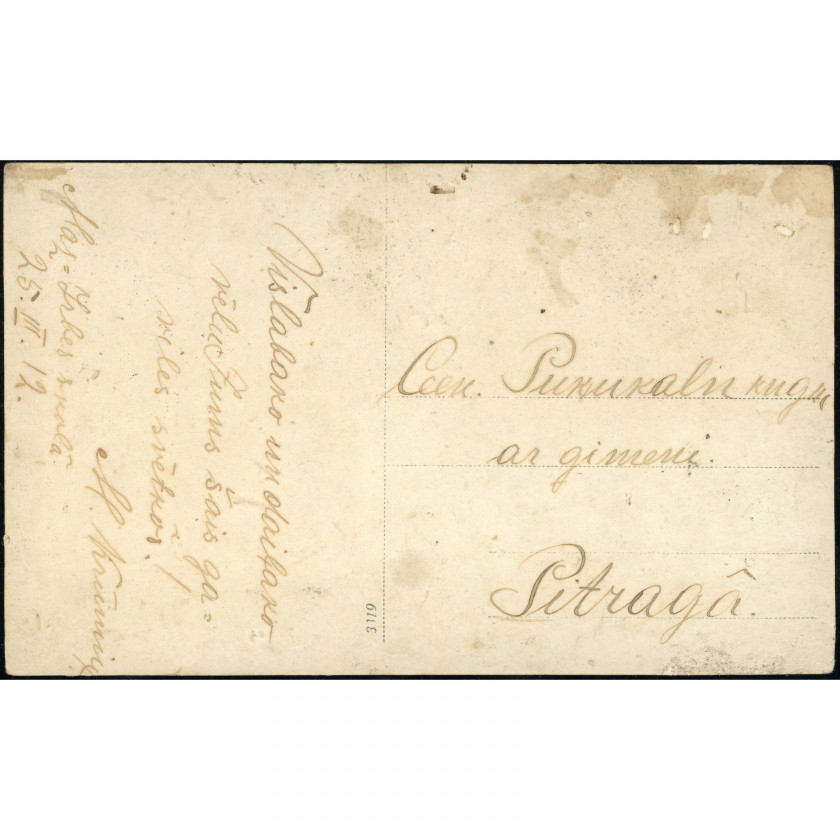 Vislabako un daiļako
vēlu Jums šais ga-
viles svētkos!
M.
Maz-Irbes skolā.
25. III. 12.
3119
Cien. Pukukaln kung
ar gimeni.
Pitragâ.